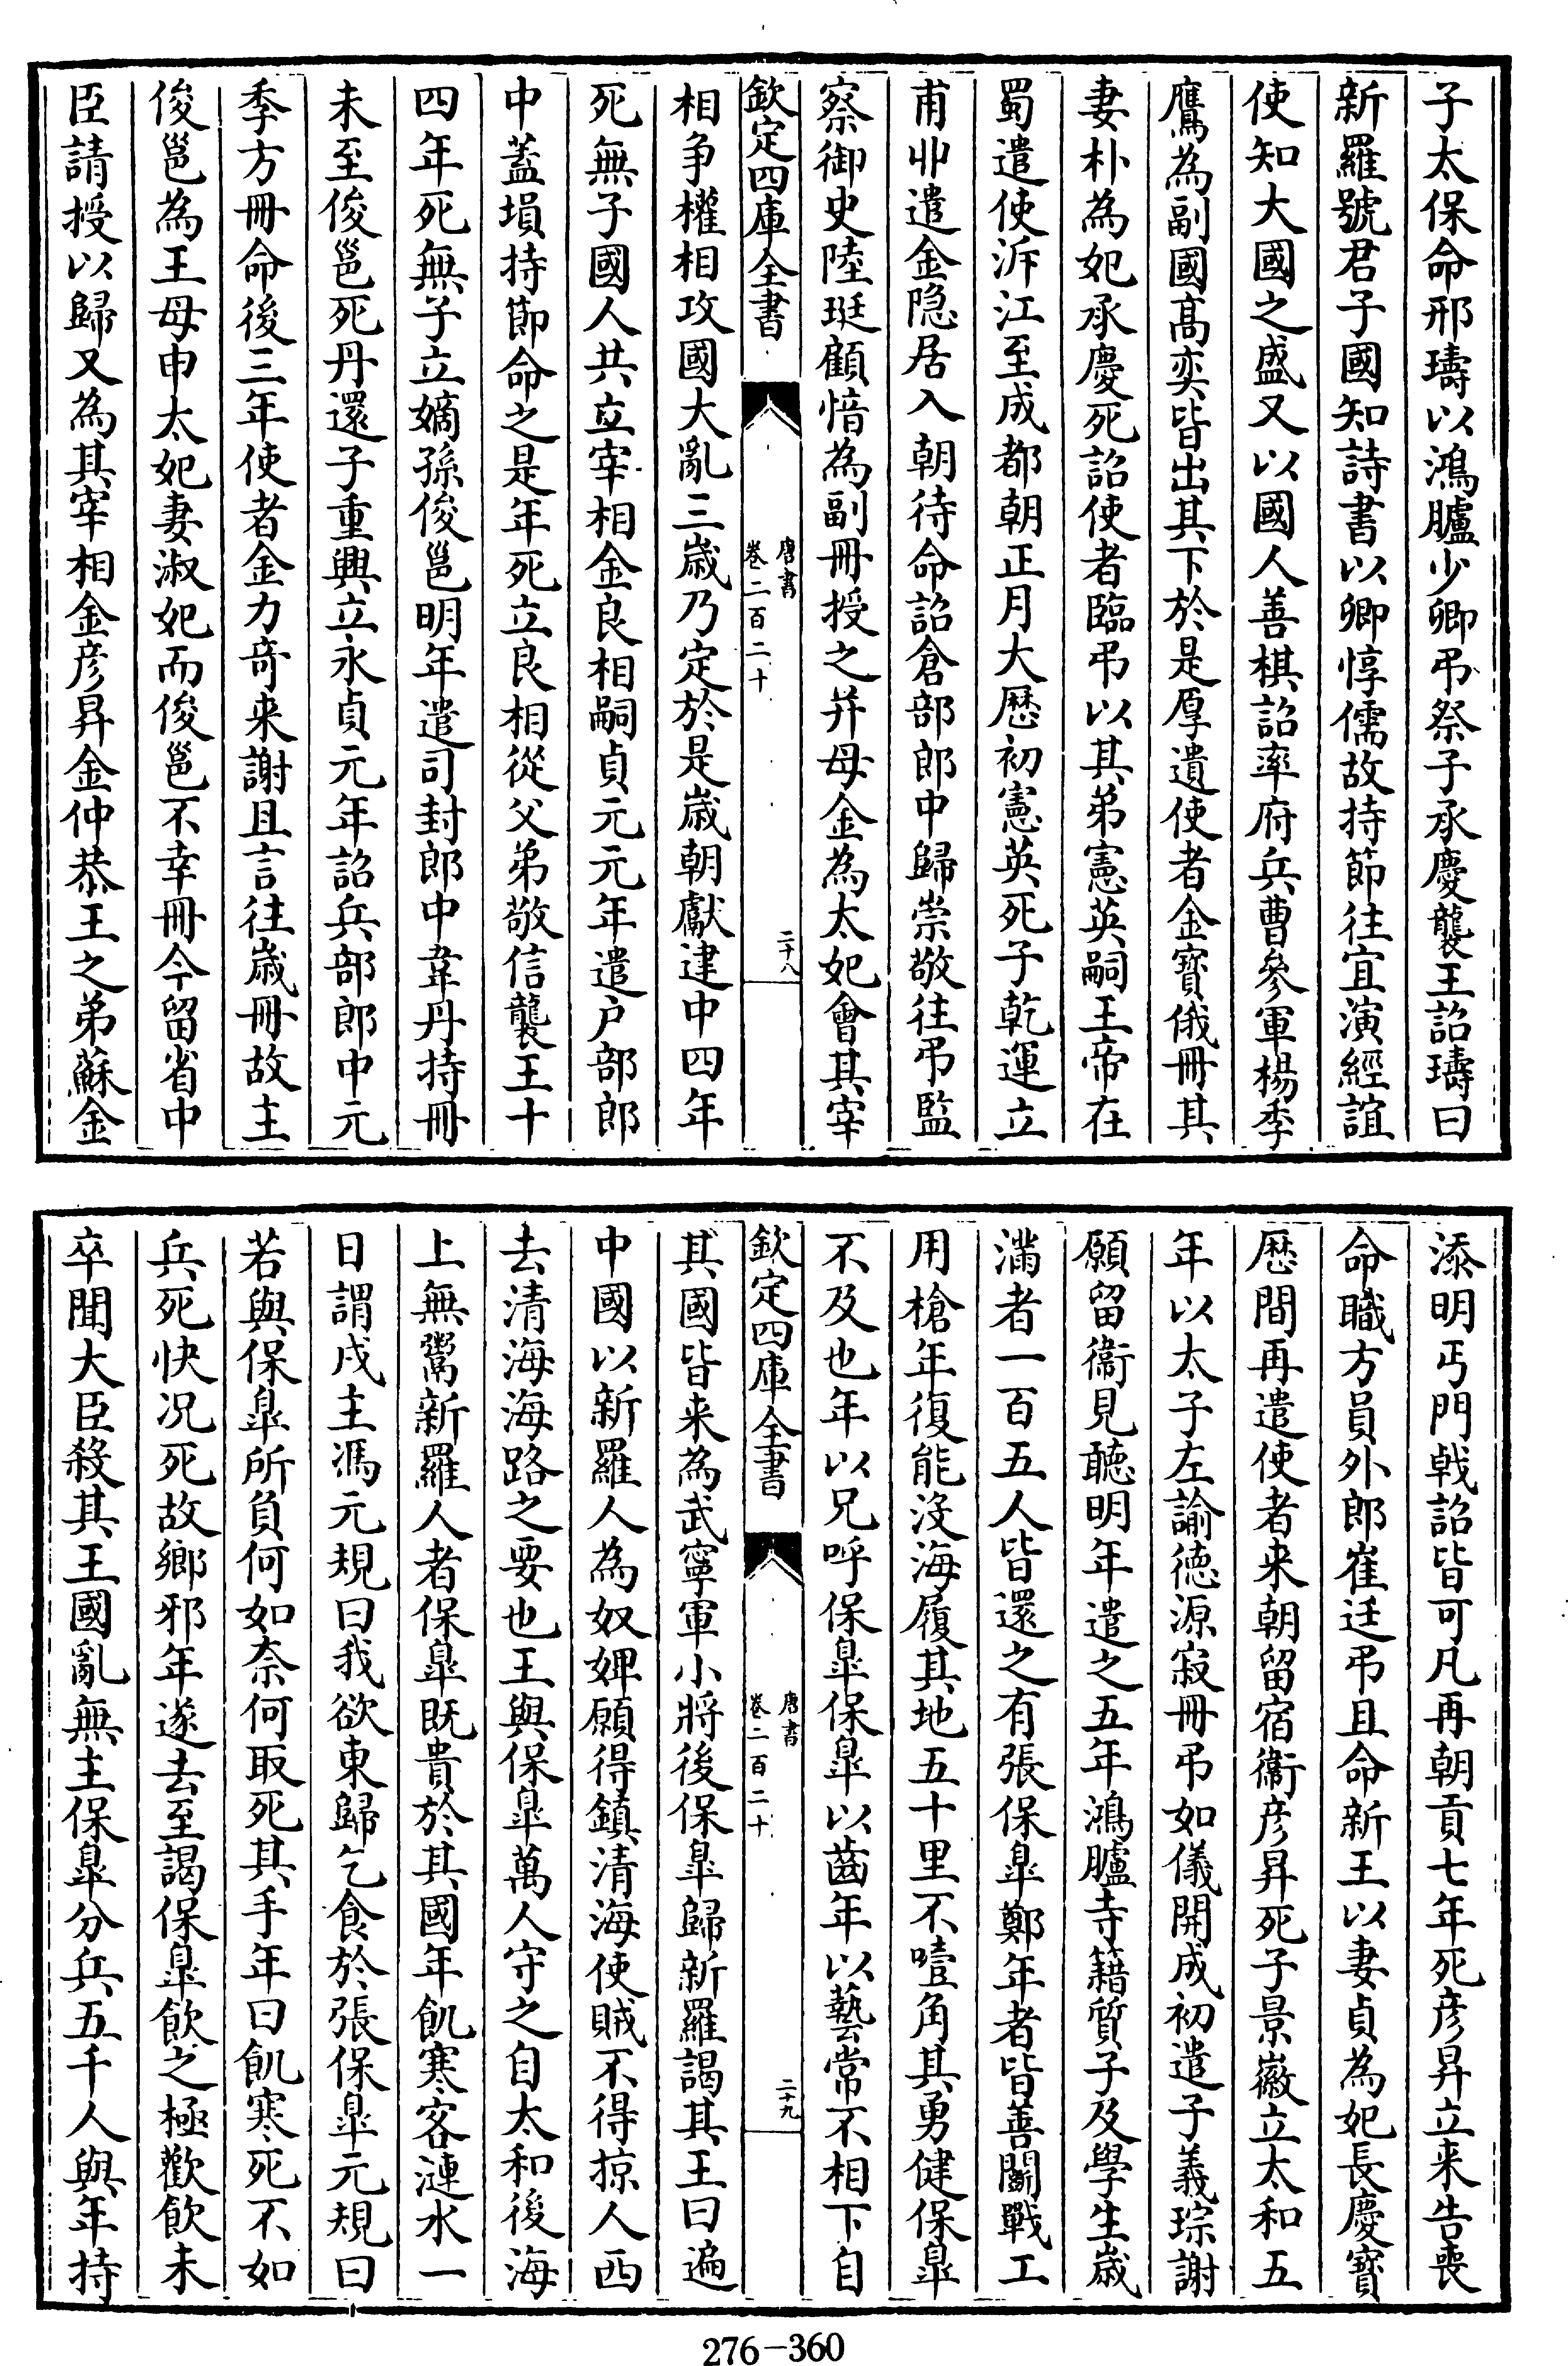 子太保命邢璹以鴻臚少卿弔祭子承慶襲王詔璹曰
新羅號君子國知詩書以卿惇儒故持節往宜演經誼
使知大國之盛又以國人善棋詔率府兵曹參軍楊季
鷹為副國髙奕皆出其下於是厚遺使者金寳俄冊其
妻朴為妃承慶死詔使者臨弔以其弟憲英嗣王帝在
蜀遣使泝江至成都朝正月大厯初憲英死子乾運立
甫丱遣金隐居入朝待命詔倉部郎中歸崇敬往弔監
察御史陸珽顧愔為副冊授之并母金為太妃會其宰
欽定四庫全書
唐書
卷二百二十
二十八
相争權相攻國大亂三歳乃定於是歳朝獻建中四年
死無子國人共立宰相金良相嗣貞元元年遣户部郎
中蓋塤持節命之是年死立良相從父弟敬信襲王十
四年死無子立嫡孫俊邕明年遣司封郎中韋丹持冊
未至俊邕死丹還子重興立永貞元年詔兵部郎中元
季方冊命後三年使者金力竒来謝且言往歳冊故主
俊邕為王母申太妃妻淑妃而俊邕不幸冊今留省中
臣請授以歸又為其宰相金彦昇金仲恭王之弟蘇金
添明丐門戟詔皆可凡再朝貢七年死彦昇立来告喪
命職方員外郎崔廷弔且命新王以妻貞為妃長慶寳
厯間再遣使者来朝留宿衞彦昇死子景徽立太和五
年以太子左諭徳源寂冊弔如儀開成初遣子義琮謝
願留衞見聽明年遣之五年鴻臚寺籍質子及學生歳
滿者一百五人皆還之有張保臯鄭年者皆善鬬戰工
用槍年復能沒海履其地五十里不噎角其勇健保臯
不及也年以兄呼保臯保臯以齒年以藝常不相下自
欽定四庫全書
唐書
卷二百二十
二十九
其國皆来為武寧軍小將後保臯歸新羅謁其王曰遍
中國以新羅人為奴婢願得鎮清海使賊不得掠人西
去清海海路之要也王與保臯萬人守之自太和後海
上無鬻新羅人者保臯既貴於其國年飢寒客漣水一
日謂戍主馮元規曰我欲東歸乞食於張保臯元規曰
若與保臯所負何如奈何取死其手年曰飢寒死不如
兵死快况死故鄉邪年遂去至謁保臯飲之極歡飲未
卒聞大臣殺其王國亂無主保臯分兵五千人與年持
276-360